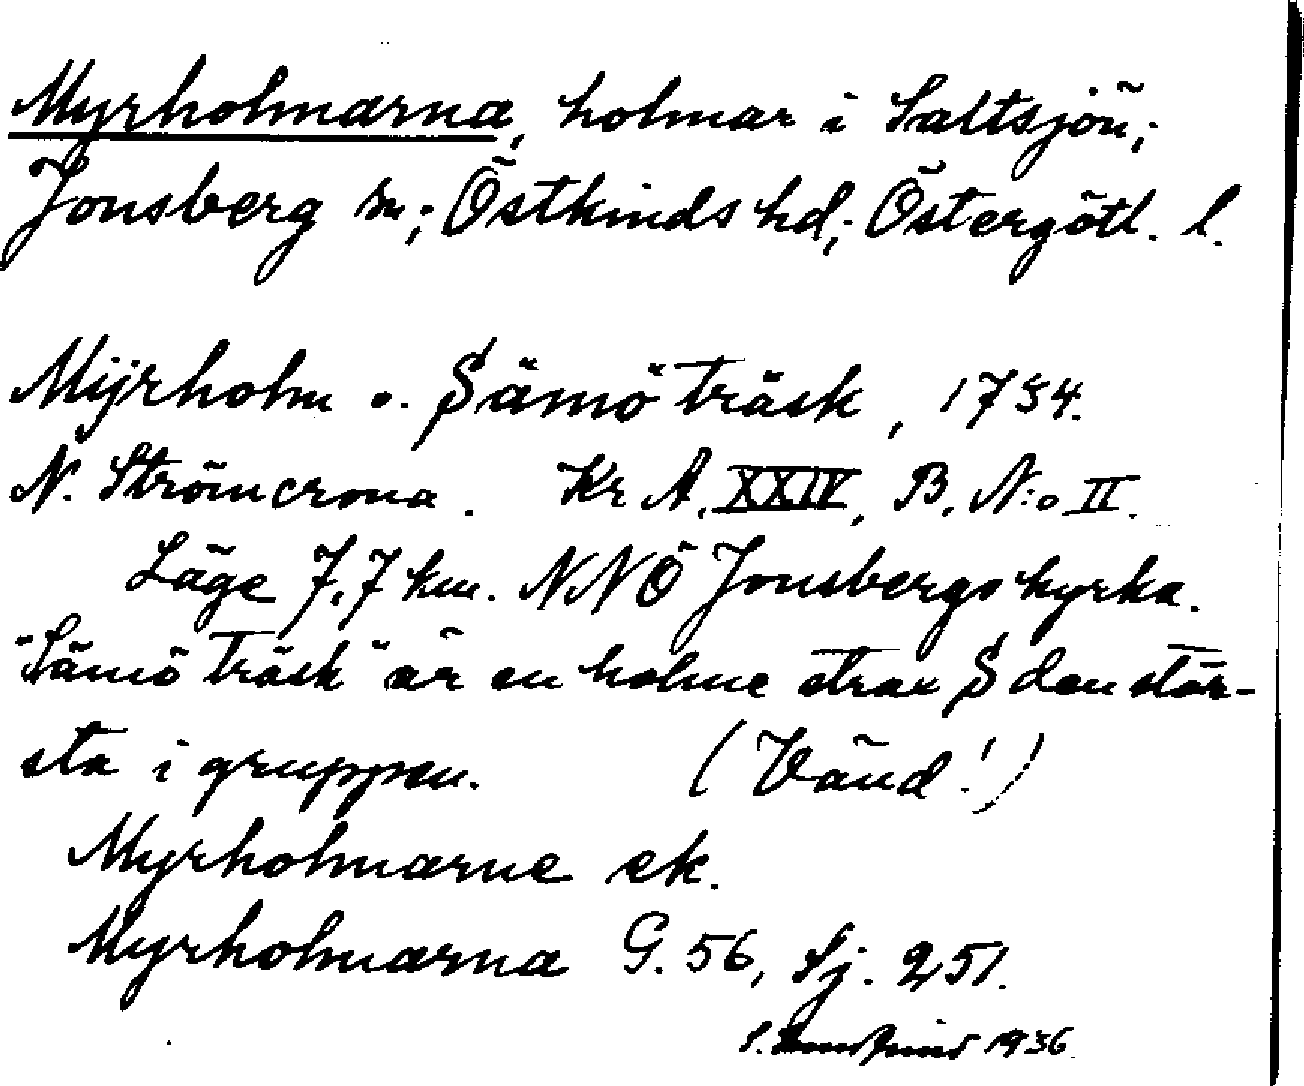 Myrholmarna, holmar i Saltsjön,;
Jonsberg sn,; Östkinds hd,; Östergötl. l.
Mÿrholm o. Sämö träsk, 1734.
N. Strömcrona. Kr A. XXIV, B. N:o II.
Läge 7,7 km. NNÖ Jonsbergs kyrka.
"Sämö träsk" är en holme strax S den stör-
sta i gruppen. (Vänd!)
Myrholmarne ek.
Myrholmarna G. 56, Sj. 251.
1936